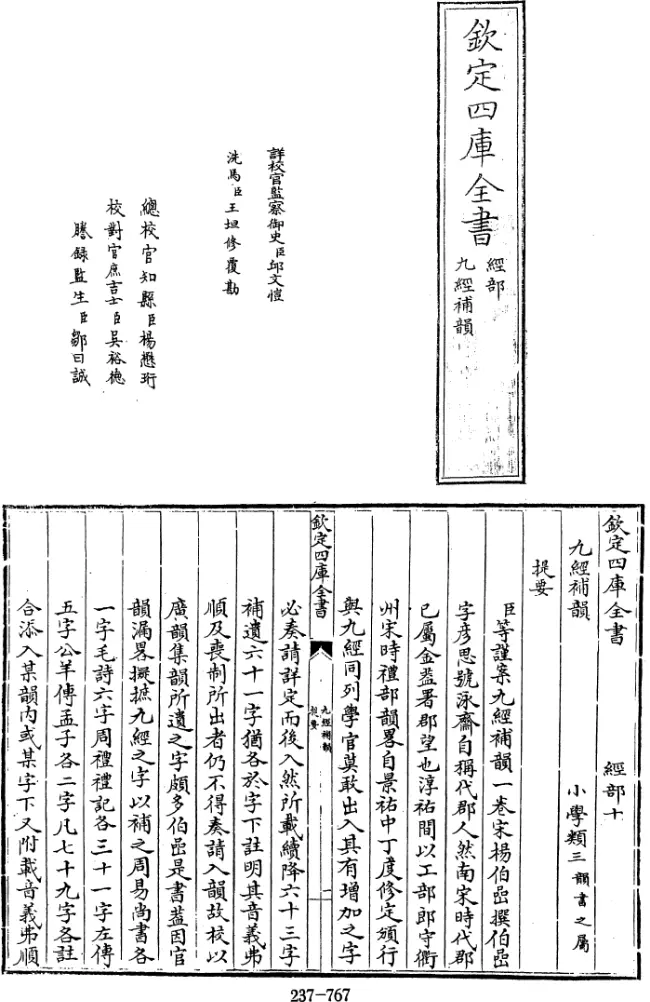 欽定四庫全書
經部
九經補韻
詳校官監察御史臣邱文愷
洗馬臣王坦修覆勘
總校官知縣臣楊懋珩
校對官庶吉士臣吳裕德
謄錄監生臣鄒曰誠
欽定四庫全書
經部十
九經補韻
小學類三韻書之屬
提要
臣等謹案九經補韻一卷宋楊伯嵒撰伯嵒
字彦思號泳齋自稱代郡人然南宋時代郡
已屬金葢署郡望也淳祐間以工部郎守衢
州宋時禮部韻畧自景祐中丁度修定頒行
與九經同列學官莫敢出入其有增加之字
欽定四庫全書
九經補韻
提要
一
必奏請詳定而後入然所載續降六十三字
補遺六十一字猶各於字下註明其音義弗
順及喪制所出者仍不得奏請入韻故校以
廣韻集韻所遺之字頗多伯嵒是書葢因官
韻漏畧擬摭九經之字以補之周易尚書各
一字毛詩六字周禮禮記各三十一字左傳
五字公羊傳孟子各二字凡七十九字各註
合添入某韻内或某字下又附載音義弗順
237-767